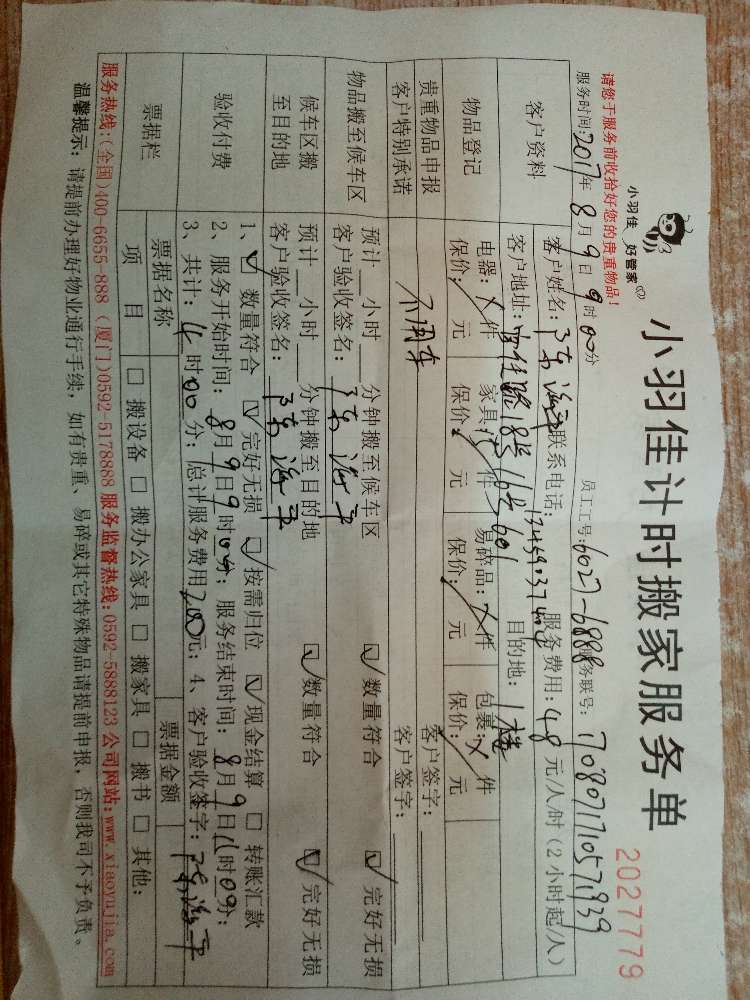 小羽佳 好管家
小羽佳计时搬家服务单
2027779
请您于服务前收拾好您的贵重物品!
员工工号:6027-6888 服务联号:
服务时间:2017年8月9日9时00分
客户资料
客户姓名: 联系电话: 服务费用:48元/人/时(2小时起/人)
客户地址: 18号 601 目的地:1楼
物品登记
电器: 件 家具: 件 易碎品: 件 包裹: 件
保价: 元 保价: 元 保价: 元 保价: 元
贵重物品申报 不用车 客户签字:
客户特别承诺 客户签字:
物品搬至候车区
预计 小时 分钟搬至候车区 数量符合 完好无损
客户验收签名:
候车区搬至目的地
预计 小时 分钟搬至目的地 数量符合 完好无损
客户验收签名:
验收付费
1、 数量符合 完好无损 按需归位 现金结算 转账汇款
2、服务开始时间:8月9日9时00分;服务结束时间:8月9日11时09分;
3、共计:4时00分;总计服务费用200元;4、客户验收签字:
票据栏
票据名称 票据金额
项目 搬设备 搬办公家具 搬家具 搬书 其他:
服务热线:(全国)400-6655-888 (厦门)0592-5178888 服务监督热线:0592-5888123 公司网站:www.xiaoyujia.com
温馨提示:请提前办理好物业通行手续,如有贵重、易碎或其它特殊物品请提前申报,否则我司不予负责。